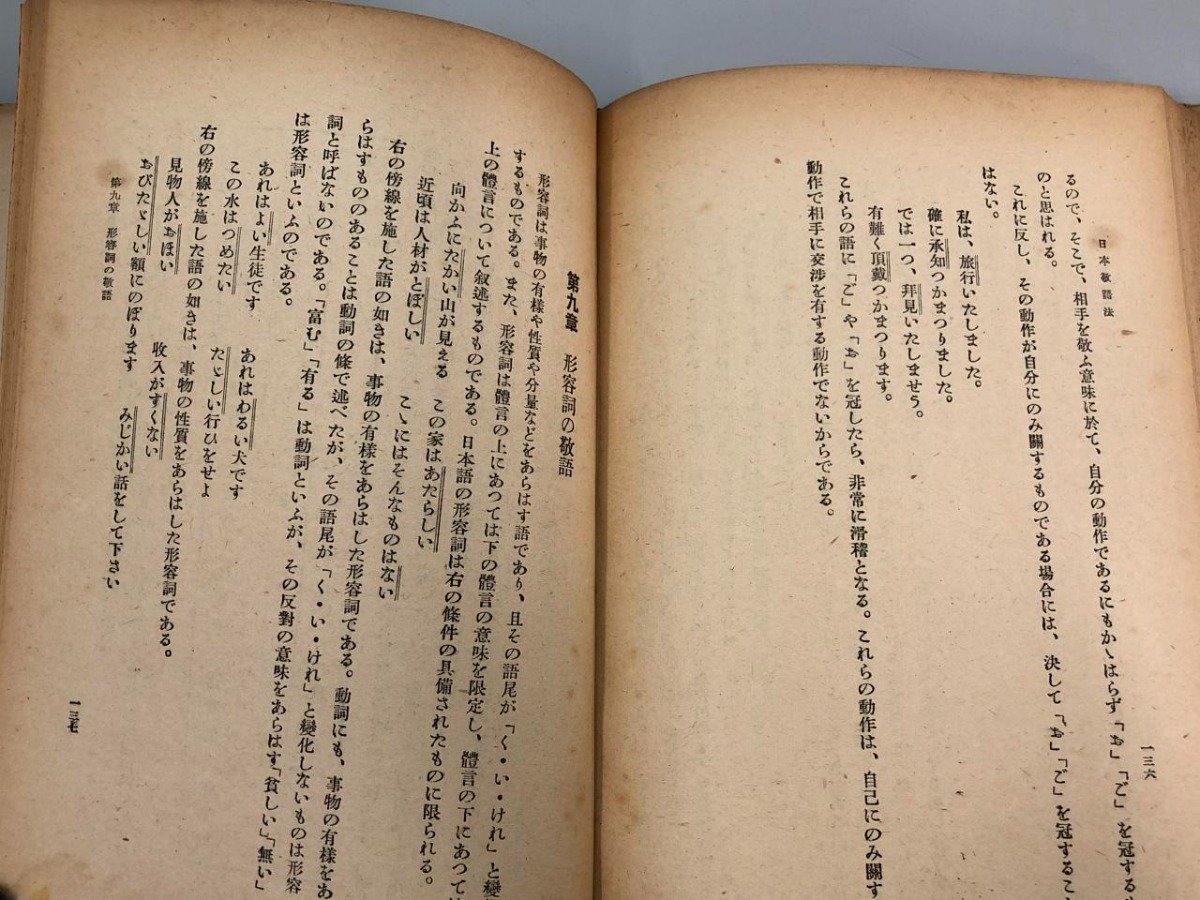 日本敬語法
一三六
るので、そこで、相手を敬ふ意味に於て、自分の動作であるにもかゝはらず「お」「ご」を冠する
のと思はれる。
これに反し、その動作が自分にのみ關するものである場合には、決して「お」「ご」を冠するこ
はない。
私は、旅行いたしました。
確に承知つかまつりました。
では一つ、拜見いたしませう。
有難く頂戴つかまつります。
これらの語に「ご」や「お」を冠したら、非常に滑稽となる。これらの動作は、自己にのみ關す
動作で相手に交渉を有する動作でないからである。
第九章 形容詞の敬語
形容詞は事物の有樣や性質や分量などをあらはす語であり、且その語尾が「く・い・けれ」と變
するものである。また、形容詞は體言の上にあつては下の體言の意味を限定し、體言の下にあつて
上の體言について叙述するものである。日本語の形容詞は右の條件の具備されたものに限られる。
向かふにたかい山が見える この家はあたらしい
近頃は人材がとぼしい こゝにはそんなものはない
右の傍線を施した語の如きは、事物の有樣をあらはした形容詞である。動詞にも、事物の有樣をあ
らはすもののあることは動詞の條で述べたが、その語尾が「く・い・けれ」と變化しないものは形容
詞と呼ばないのである。「富む」「有る」は動詞といふが、その反對の意味をあらはす「貧しい」「無い」
は形容詞といふのである。
あれはよい生徒です あれはわるい犬です
この水はつめたい たゞしい行ひをせよ
右の傍線を施した語の如きは、事物の性質をあらはした形容詞である。
見物人がおほい 收入がすくない
おびたゞしい額にのぼります みじかい話をして下さい
第九章 形容詞の敬語
一三七